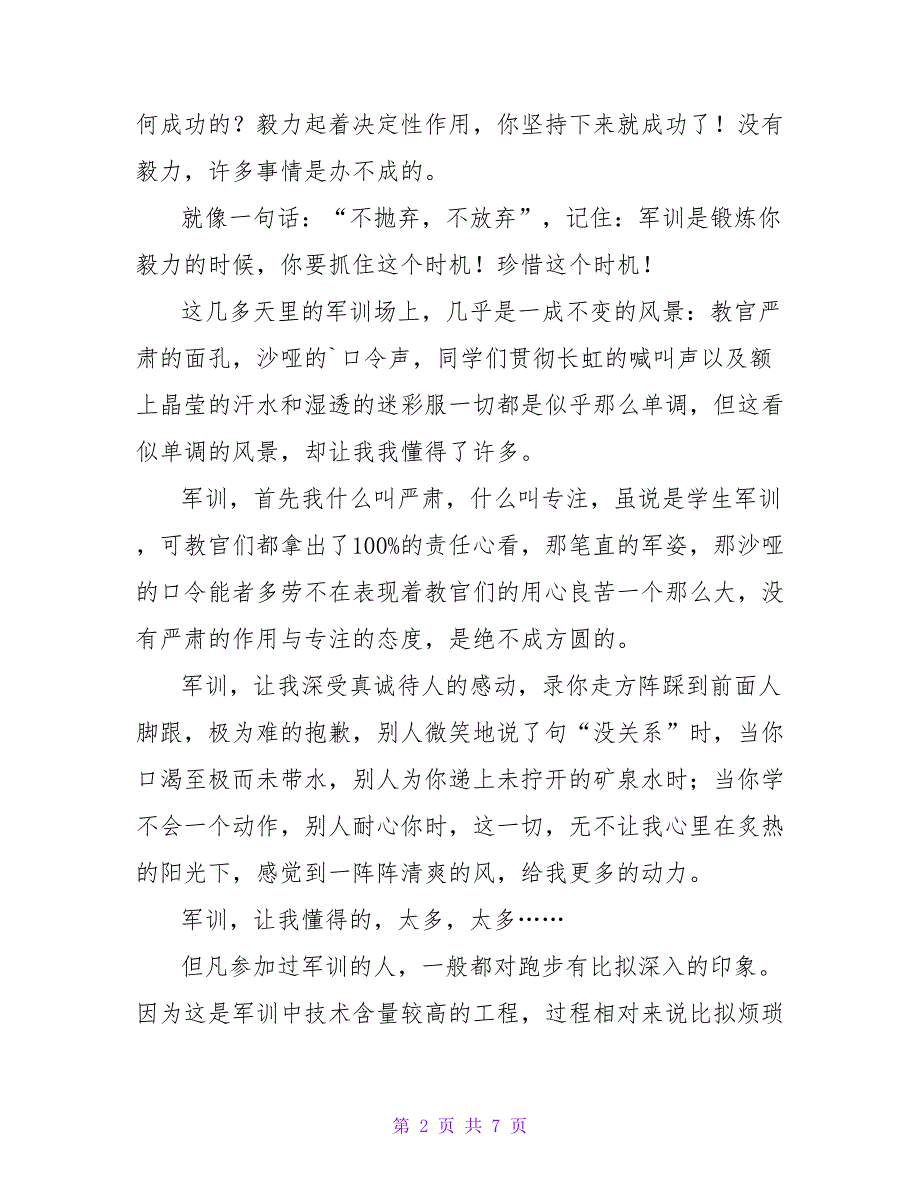 何成功的？毅力起着决定性作用，你坚持下来就成功了！没有
毅力，许多事情是办不成的。
就像一句话：“不抛弃，不放弃”，记住：军训是锻炼你
毅力的时候，你要抓住这个时机！珍惜这个时机！
这几多天里的军训场上，几乎是一成不变的风景：教官严
肃的面孔，沙哑的`口令声，同学们贯彻长虹的喊叫声以及额
上晶莹的汗水和湿透的迷彩服一切都是似乎那么单调，但这看
似单调的风景，却让我我懂得了许多。
军训，首先我什么叫严肃，什么叫专注，虽说是学生军训
，可教官们都拿出了100%的责任心看，那笔直的军姿，那沙哑
的口令能者多劳不在表现着教官们的用心良苦一个那么大，没
有严肃的作用与专注的态度，是绝不成方圆的。
军训，让我深受真诚待人的感动，录你走方阵踩到前面人
脚跟，极为难的抱歉，别人微笑地说了句“没关系”时，当你
口渴至极而未带水，别人为你递上未拧开的矿泉水时；当你学
不会一个动作，别人耐心你时，这一切，无不让我心里在炙热
的阳光下，感觉到一阵阵清爽的风，给我更多的动力。
军训，让我懂得的，太多，太多……
但凡参加过军训的人，一般都对跑步有比拟深入的印象。
因为这是军训中技术含量较高的工程，过程相对来说比拟烦琐
第 2 页 共 7 页